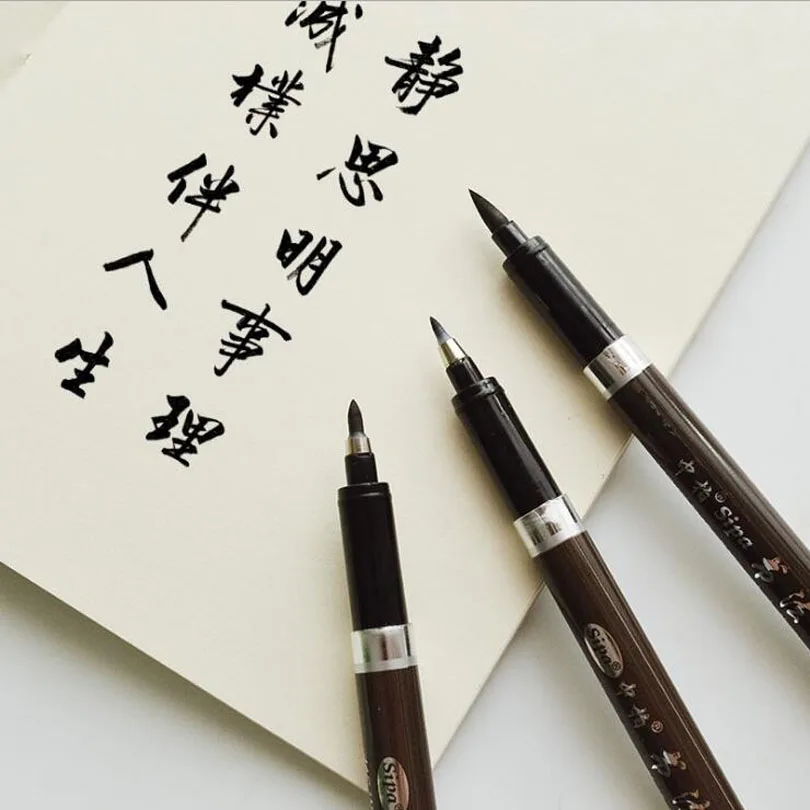 静思明事理
樸伴人生
中柏® Sipa
Sipa® 中柏®
Sipa